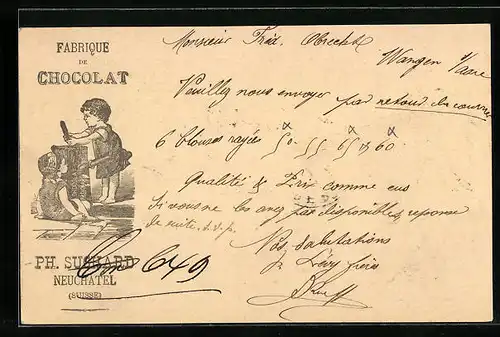 FABRIQUE
DE
CHOCOLAT
PH. SUCHARD
NEUCHATEL
(SUISSE)
Monsieur Obrecht
Wangen s/aare
Veuillez nous envoyer par retour du courrier
6 blouses rayées 50 55 65 & 60
Qualité & Prix comme
si vous ne les avez pas disponibles, reponse
de suite s.v.p.
Nos salutations
Lévy frères
649